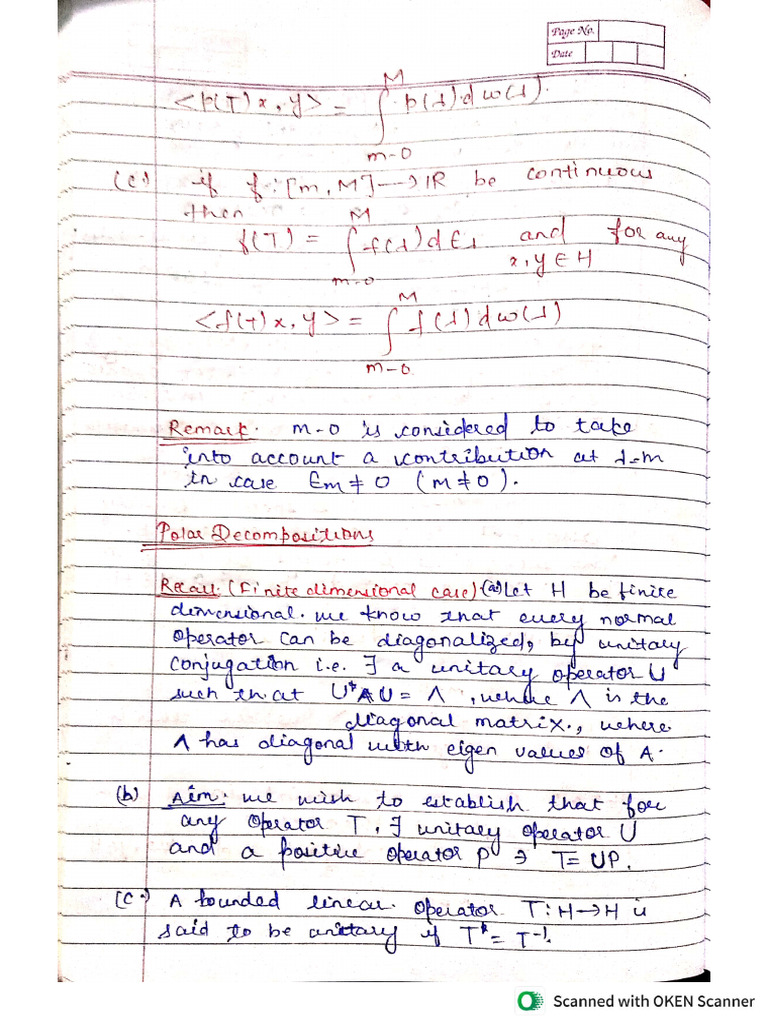 Page No.
Date
<p(T)x, y> = ∫_{m-0}^{M} p(λ) d w(λ).
(c.) if f: [m, M] → IR be continuous
then
f(T) = ∫_{m-0}^{M} f(λ) d E_λ and for any
x, y ∈ H
<f(T)x, y> = ∫_{m-0}^{M} f(λ) d w(λ)
Remark. m-0 is considered to take
into account a contribution at λ=m
in case Em ≠ 0 (m ≠ 0).
Polar Decompositions
Recall: (Finite dimensional case) (a) Let H be finite
dimensional. we know that every normal
operator can be diagonalized, by unitary
conjugation i.e. ∃ a unitary operator U
such that U*AU = Λ, where Λ is the
diagonal matrix., where
Λ has diagonal with eigen values of A.
(b) Aim: we wish to establish that for
any operator T, ∃ unitary operator U
and a positive operator P ∋ T = UP.
(c.) A bounded linear operator T: H → H is
said to be unitary if T* = T⁻¹.
Scanned with OKEN Scanner